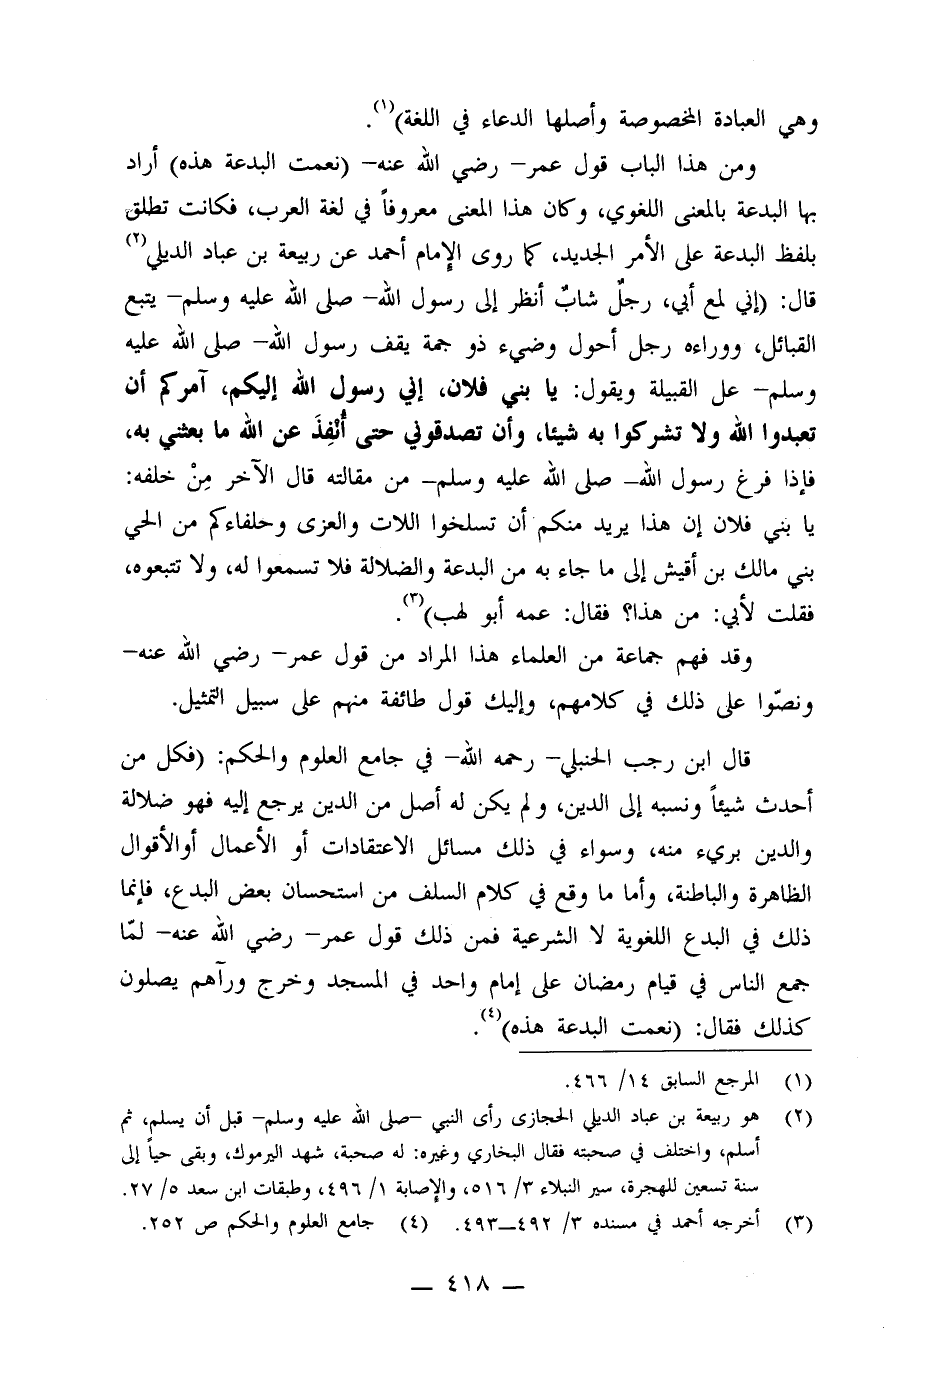 وهي العبادة المخصوصة وأصلها الدعاء في اللغة)(١).
ومن هذا الباب قول عمر– رضي الله عنه– (نعمت البدعة هذه) أراد
بها البدعة بالمعنى اللغوي، وكان هذا المعنى معروفاً في لغة العرب، فكانت تطلق
بلفظ البدعة على الأمر الجديد، كما روى الإمام أحمد عن ربيعة بن عباد الديلي(٢)
قال: (إني لمع أبي، رجلٌ شابٌ أنظر إلى رسول الله– صلى الله عليه وسلم– يتبع
القبائل، ووراءه رجل أحول وضيء ذو جمة يقف رسول الله– صلى الله عليه
وسلم– على القبيلة ويقول: يا بني فلان، إني رسول الله إليكم، آمركم أن
تعبدوا الله ولا تشركوا به شيئا، وأن تصدقوني حتى أُنْفِذَ عن الله ما بعثني به،
فإذا فرغ رسول الله– صلى الله عليه وسلم– من مقالته قال الآخر مِنْ خلفه:
يا بني فلان إن هذا يريد منكم أن تسلخوا اللات والعزى وحلفاءكم من الحي
بني مالك بن أقيش إلى ما جاء به من البدعة والضلالة فلا تسمعوا له، ولا تتبعوه،
فقلت لأبي: من هذا؟ فقال: عمه أبو لهب)(٣).
وقد فهم جماعة من العلماء هذا المراد من قول عمر– رضي الله عنه–
ونصّوا على ذلك في كلامهم، وإليك قول طائفة منهم على سبيل التمثيل.
قال ابن رجب الحنبلي– رحمه الله– في جامع العلوم والحكم: (فكل من
أحدث شيئاً ونسبه إلى الدين، ولم يكن له أصل من الدين يرجع إليه فهو ضلالة
والدين بريء منه، وسواء في ذلك مسائل الاعتقادات أو الأعمال أوالأقوال
الظاهرة والباطنة، وأما ما وقع في كلام السلف من استحسان بعض البدع، فإنما
ذلك في البدع اللغوية لا الشرعية فمن ذلك قول عمر– رضي الله عنه– لمّا
جمع الناس في قيام رمضان على إمام واحد في المسجد وخرج ورآهم يصلون
كذلك فقال: (نعمت البدعة هذه)(٤).
(١) المرجع السابق ١٤/ ٤٦٦.
(٢) هو ربيعة بن عباد الديلي الحجازى رأى النبي –صلى الله عليه وسلم– قبل أن يسلم، ثم
أسلم، واختلف في صحبته فقال البخاري وغيره: له صحبة، شهد اليرموك، وبقى حياً إلى
سنة تسعين للهجرة، سير النبلاء ٣/ ٥١٦، والإصابة ١/ ٤٩٦، وطبقات ابن سعد ٥/ ٢٧.
(٣) أخرجه أحمد في مسنده ٣/ ٤٩٢–٤٩٣. (٤) جامع العلوم والحكم ص ٢٥٢.
– ٤١٨ –